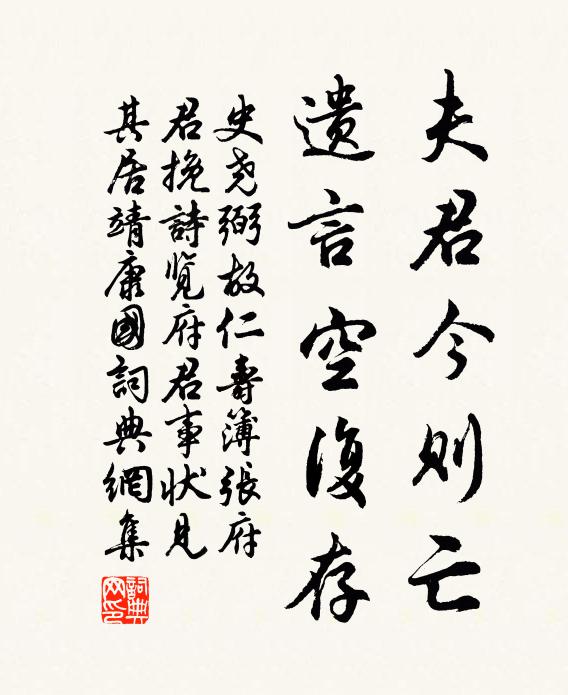 夫君今則亡
遺言空復存
史堯弼故仁壽簿張府
君挽詩覽府君事狀見
其居靖康國詞典網集
詞典網印